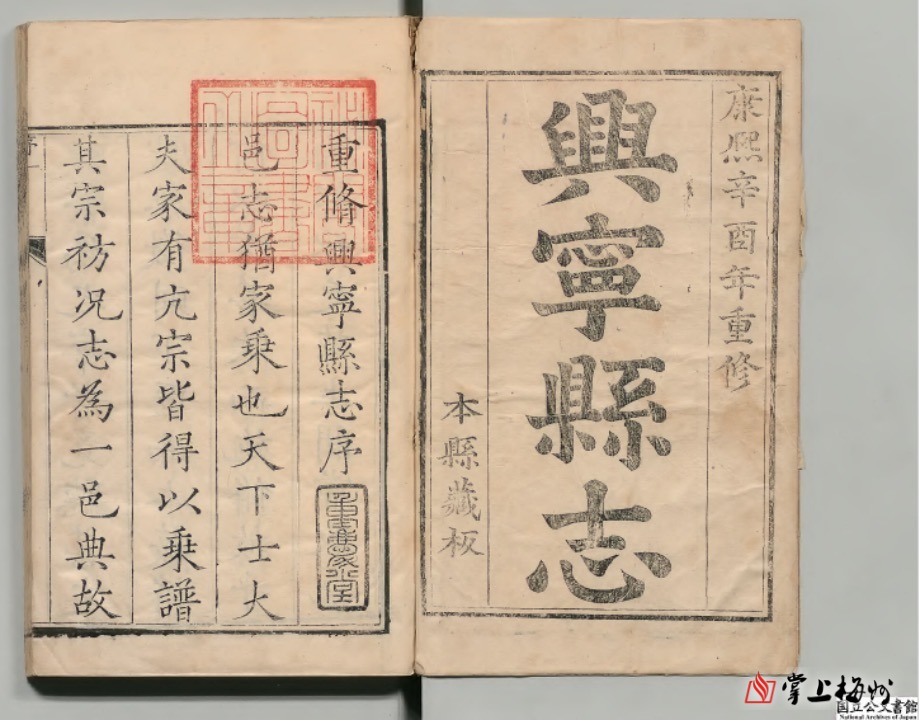 康熙辛酉年重修
興寧縣志
本縣藏板
重脩興寧縣志序
邑志猶家乘也天下士大
夫家有亢宗皆得以乘譜
其宗祊况志為一邑典故
掌上梅州
国立公文書館
National Archives of Japan